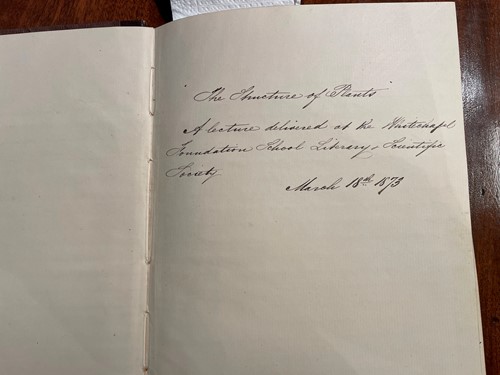 "The Structure of Plants"
A lecture delivered at the Whitechapel
Foundation School Library & Scientific
Society
March 18th 1873